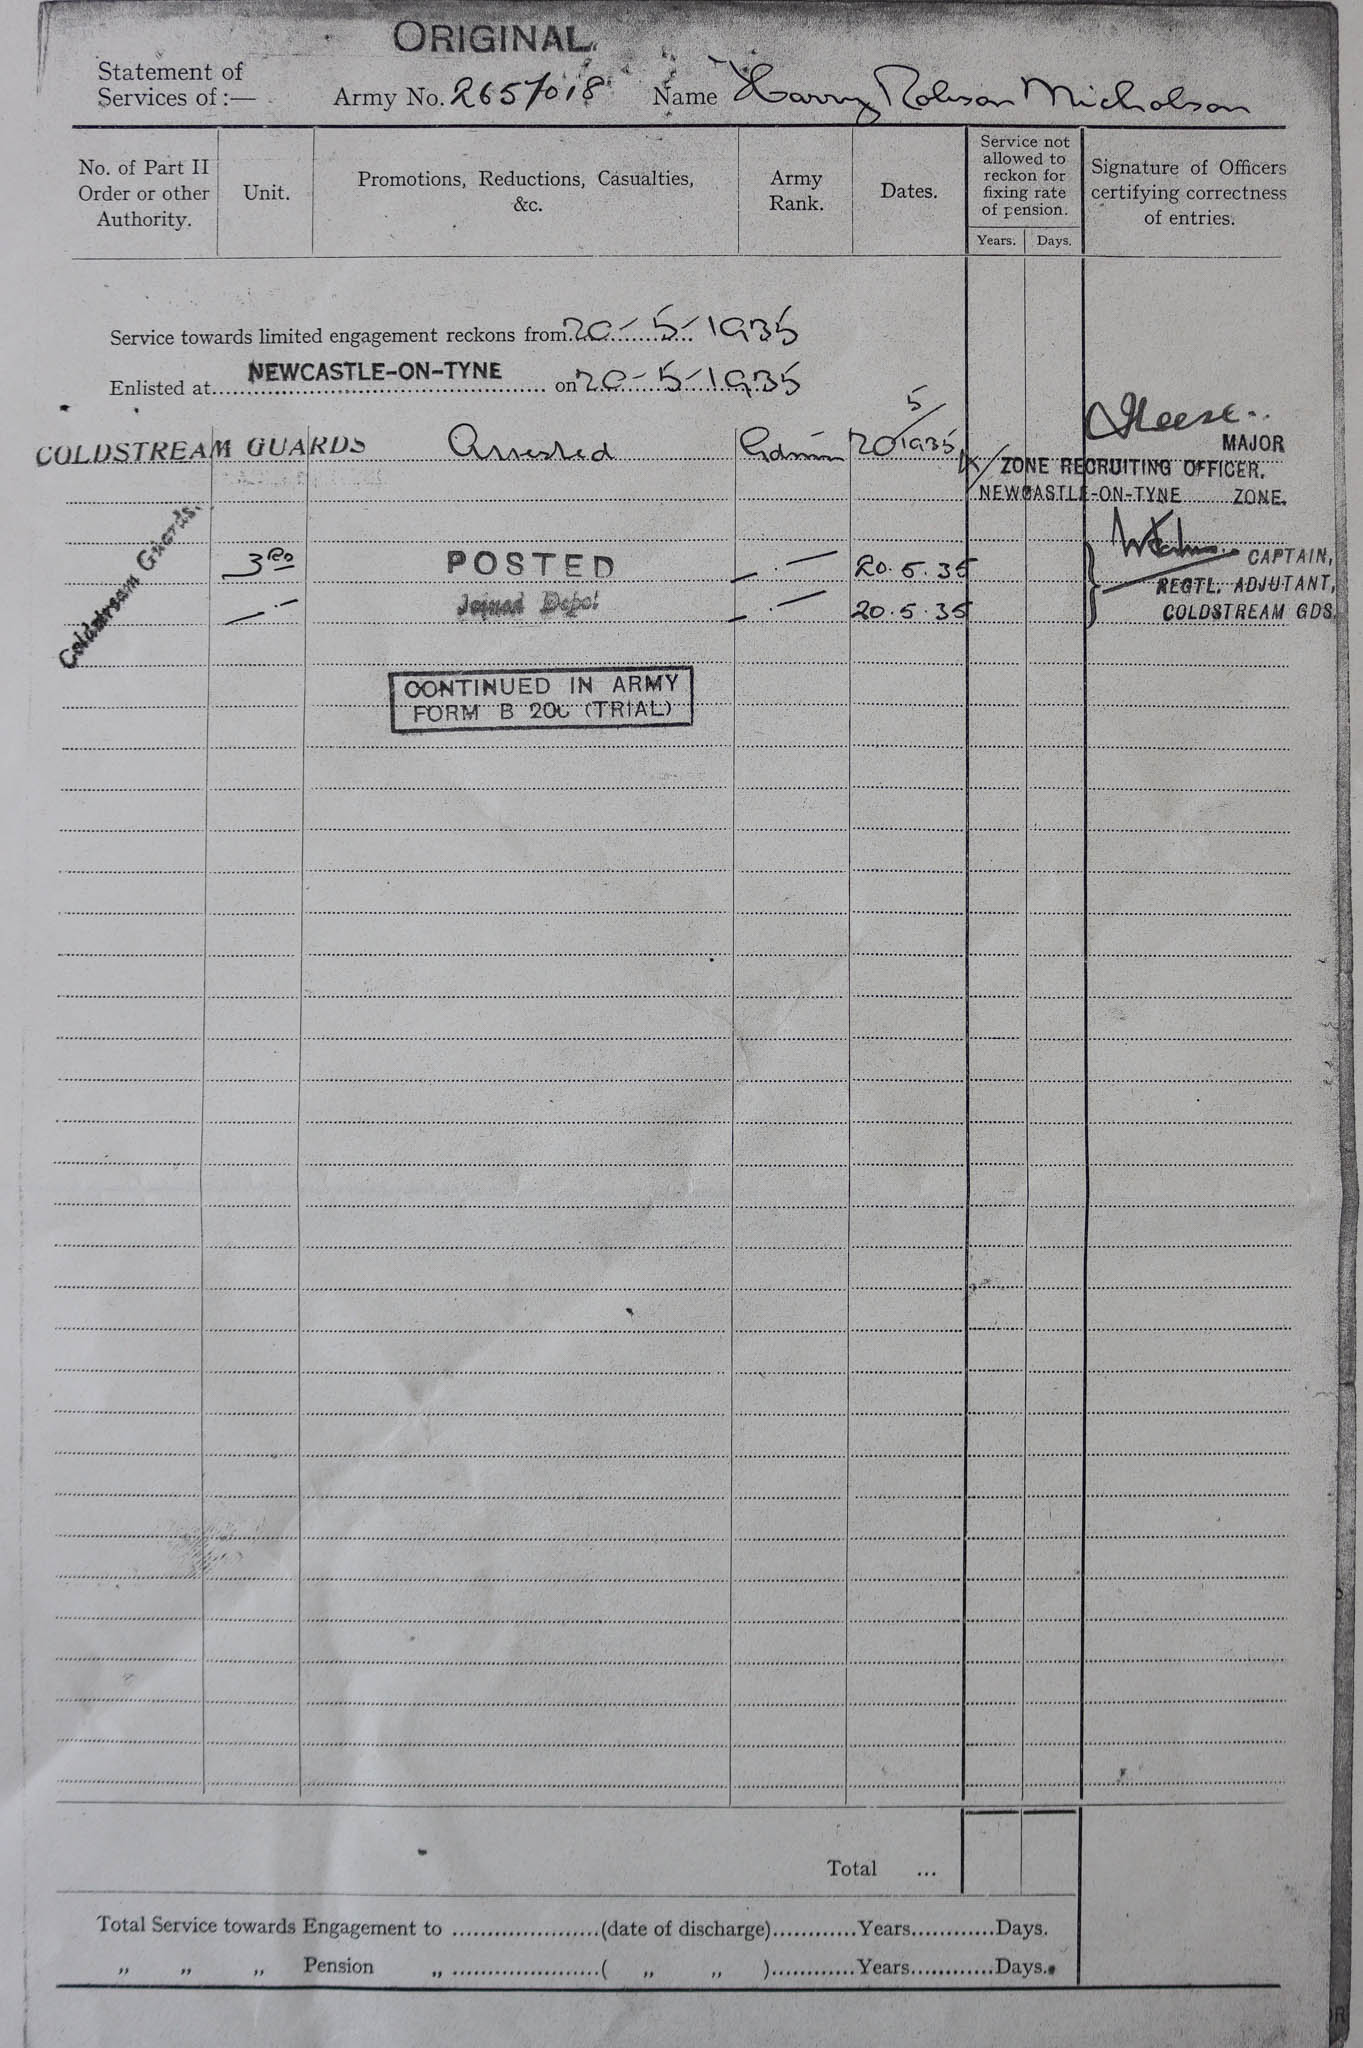 ORIGINAL.
Statement of
Services of :—
Army No. 2657018 Name Harry Robson Nicholson
No. of Part II Order or other Authority.
Unit.
Promotions, Reductions, Casualties, &c.
Army Rank.
Dates.
Service not allowed to reckon for fixing rate of pension.
Years. Days.
Signature of Officers certifying correctness of entries.
Service towards limited engagement reckons from 20-5-1935
Enlisted at NEWCASTLE-ON-TYNE on 20-5-1935
COLDSTREAM GUARDS Attested 20 5/1935
MAJOR
ZONE RECRUITING OFFICER.
NEWCASTLE-ON-TYNE ZONE.
Coldstream Guards.
3RD POSTED 20.5.35 CAPTAIN,
REGTL. ADJUTANT,
Joined Depot 20.5.35 COLDSTREAM GDS.
CONTINUED IN ARMY
FORM B 200 (TRIAL)
Total ...
Total Service towards Engagement to ..................... (date of discharge) ............ Years ............ Days.
„ „ „ Pension „ ..................... ( „ „ ) ............ Years ............ Days.